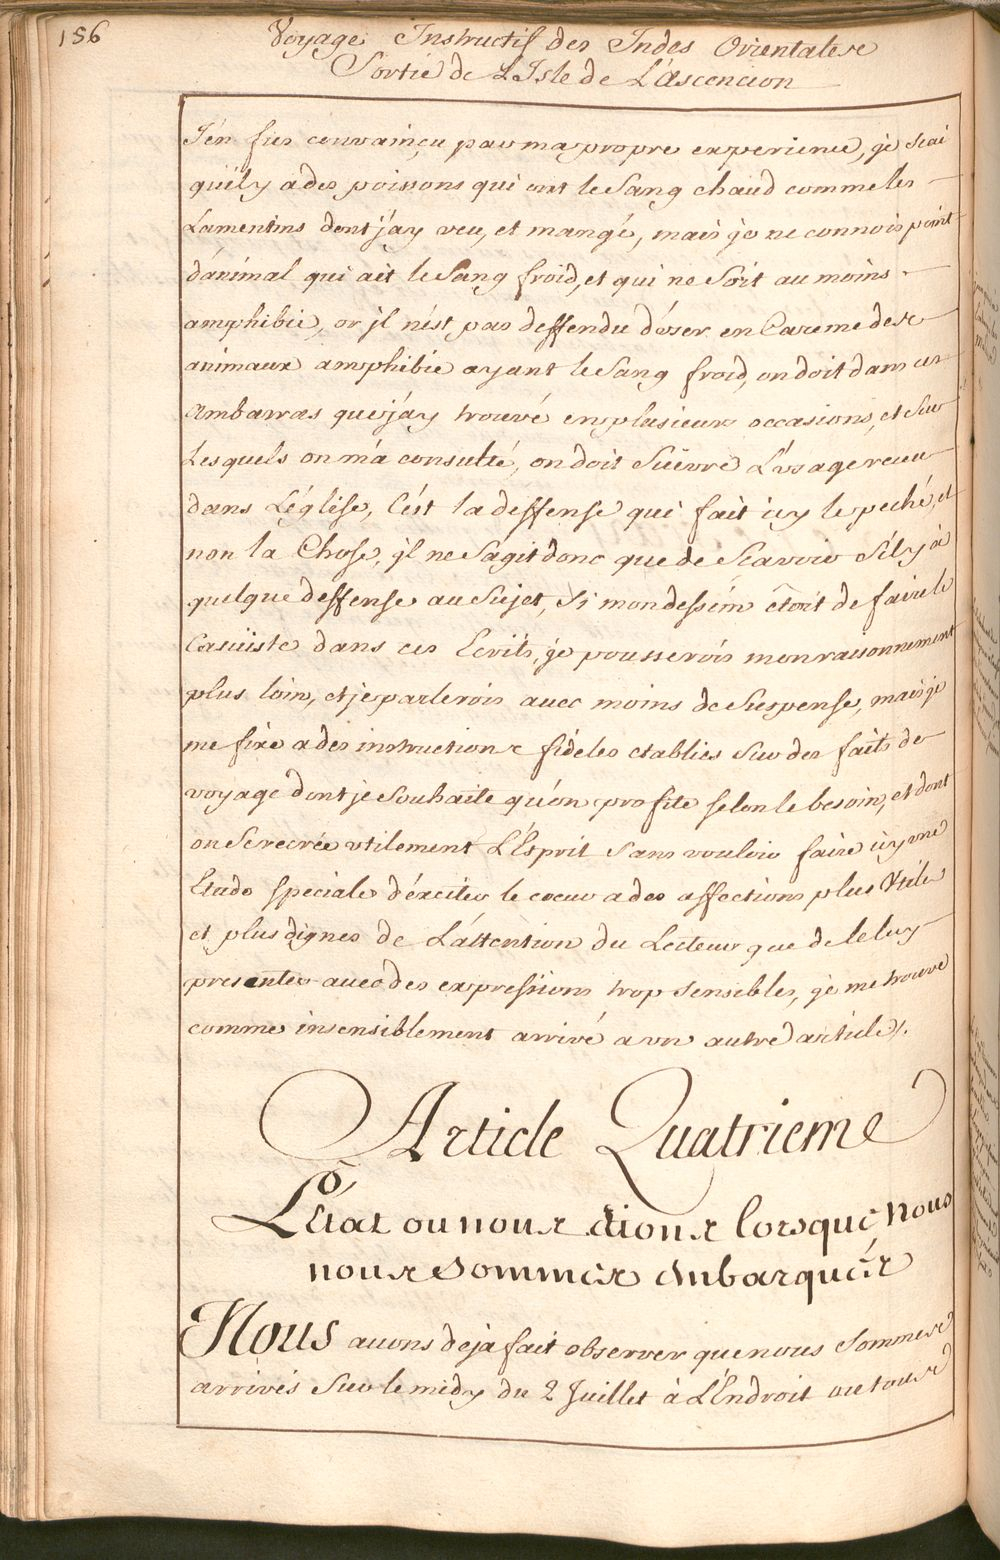 156
Voyage Instructif des Indes Orientales
Sortie de L'Isle de L'Ascencion
J'en fus convainçu par ma propre experience, je scai
qu'il y a des poissons qui ont le Sang chaud comme les
Lamentins dont j'ay veu, et mangé, mais je ne connois point
d'animal qui ait le Sang froid, et qui ne Soit au moins
amphibie, or jl n'est pas deffendu d'vser en Careme des
animaux amphibie ayant le Sang froid, on doit dans ces
Ambarras que j'ay trouvé en plusieurs occasions, et Sur
Lesquels on m'a consulté, on doit Suivre L'vsage receu
dans L'église, C'est la deffense qui fait icy le peché, et
non la Chose, jl ne S'agit donc que de Scavoir S'il y à
quelque deffense au Sujet, Si mon dessein étoit de faire le
Casuiste dans ces Ecrits, je pousserois mon raisonnement
plus loin, et je parlerois avec moins de Suspense, mais je
me fixe a des instructions fideles etablies Sur des faits de
voyage dont je Souhaite qu'on profite selon le besoin, et dont
on Se recrée vtilement L'Esprit Sans vouloir faire icy vne
Etude speciale d'éxciter le coeur a des affections plus Vtiles
et plus dignes de L'attention du Lecteur que de le luy
presenter avec des expressions trop Sensibles, je me trouve
comme insensiblement arrivé a vn autre article /.
Article Quatrieme
L'état ou nous étions lorsque Nous
nous Sommes embarqués
Nous avons deja fait observer que nous Sommes
arrivés Sur le midy du 2 Juillet à L'Endroit ou tous